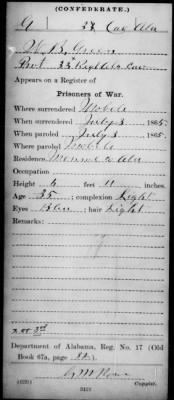 (CONFEDERATE.)
G Cav Ala
W. B. Green
Pvt Regt Ala Cav
Appears on a Register of
Prisoners of War.
Where surrendered Mobile
When surrendered July 3, 1865.
When paroled July 3, 1865.
Where paroled Mobile
Residence Monroe Co Ala
Occupation
Height 6 feet 11 inches.
Age 35; complexion Light
Eyes Blue; hair Light
Remarks:
Department of Alabama, Reg. No. 17 (Old
Book 67a, page
Copyist.